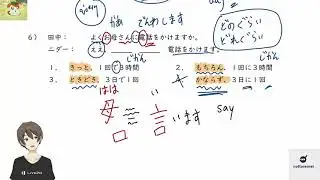 かあ でんわします
どのぐらい
どれぐらい
6） 田中： よくお母さんに電話をかけますか。
ニダー： ええ、 電話をかけます。
じかん じかん
1．きっと、1回で3時間 2．もちろん、1回に3時間
3．ときどき、3日で1回 4．かならず、3日に1回
はは い
母 言います say
口 口
Live2D